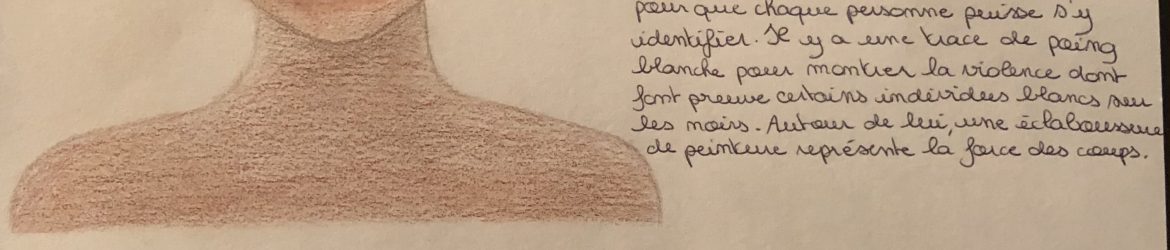 pour que chaque personne puisse s'y
identifier. Il y a une trace de poing
blanche pour montrer la violence dont
font preuve certains individus blancs sur
les noirs. Autour de lui, une éclaboussure
de peinture représente la force des coups.